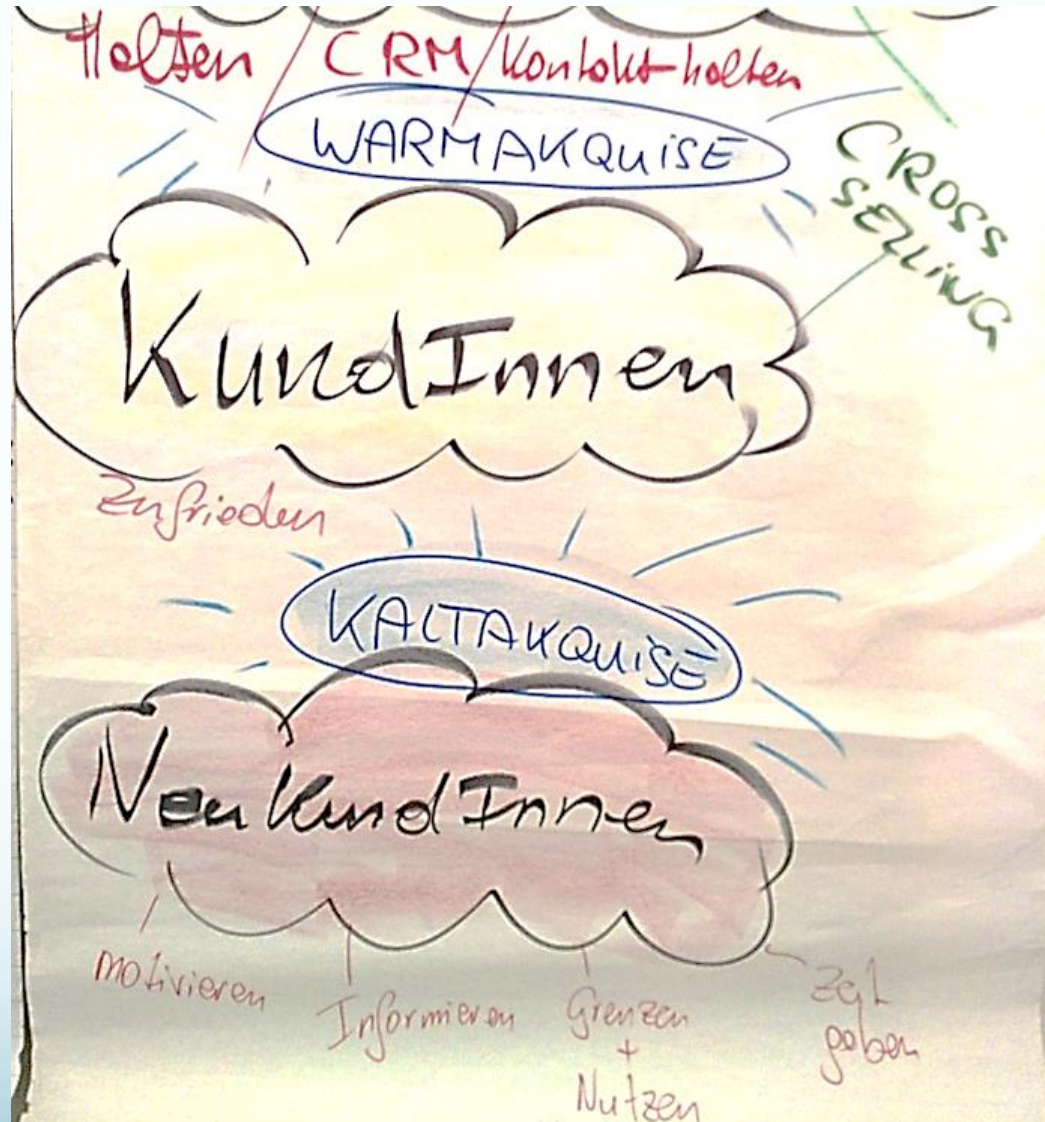 Halten / CRM / Kontakt-halten
WARMAKQUiSE
CROSS
SELLiNG
KundInnen
Zufrieden
KALTAKQUiSE
NeukundInnen
motivieren
Informieren
Grenzen
+
Nutzen
Zeit
geben